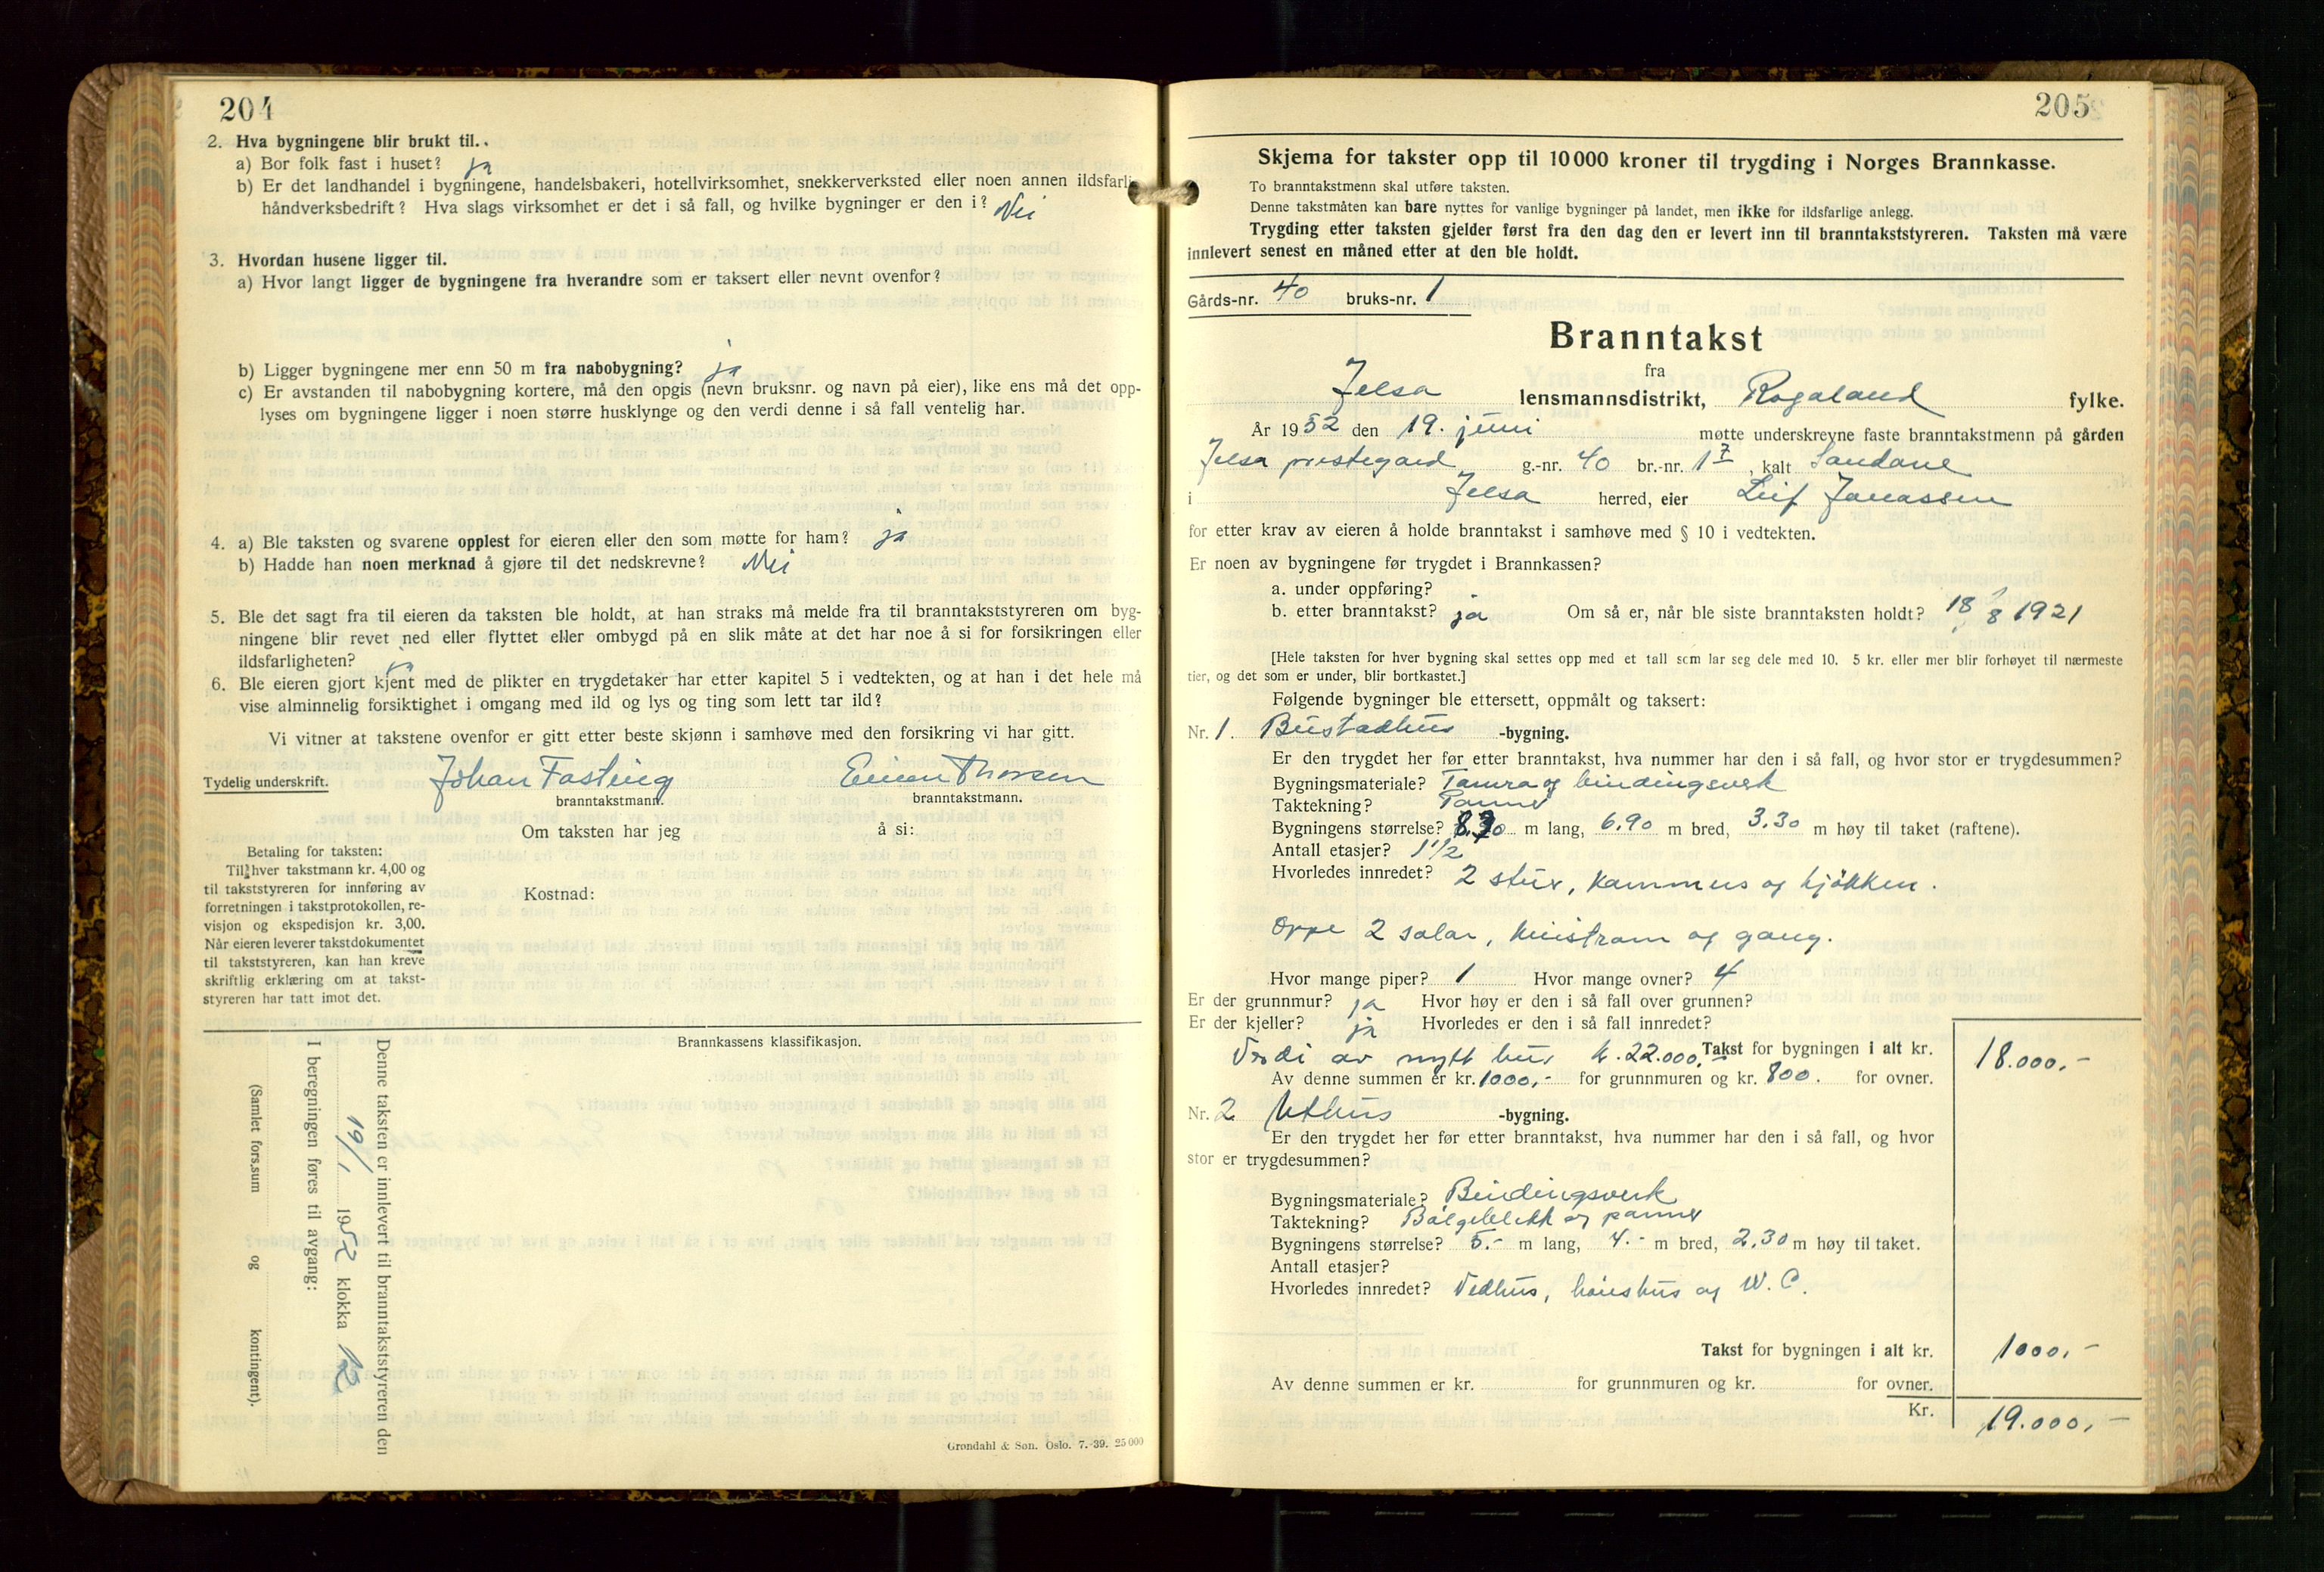 204
2. Hva bygningene blir brukt til.
a) Bor folk fast i huset? ja
b) Er det landhandel i bygningene, handelsbakeri, hotellvirksomhet, snekkerverksted eller noen annen ildsfarlig
håndverksbedrift? Hva slags virksomhet er det i så fall, og hvilke bygninger er den i? Nei
3. Hvordan husene ligger til.
a) Hvor langt ligger de bygningene fra hverandre som er taksert eller nevnt ovenfor?
b) Ligger bygningene mer enn 50 m fra nabobygning? ja
c) Er avstanden til nabobygning kortere, må den opgis (nevn bruksnr. og navn på eier), like ens må det opp-
lyses om bygningene ligger i noen større husklynge og den verdi denne i så fall ventelig har.
4. a) Ble taksten og svarene opplest for eieren eller den som møtte for ham? ja
b) Hadde han noen merknad å gjøre til det nedskrevne? Nei
5. Ble det sagt fra til eieren da taksten ble holdt, at han straks må melde fra til branntakststyreren om byg-
ningene blir revet ned eller flyttet eller ombygd på en slik måte at det har noe å si for forsikringen eller
ildsfarligheten? ja
6. Ble eieren gjort kjent med de plikter en trygdetaker har etter kapitel 5 i vedtekten, og at han i det hele må
vise alminnelig forsiktighet i omgang med ild og lys og ting som lett tar ild?
Vi vitner at takstene ovenfor er gitt etter beste skjønn i samhøve med den forsikring vi har gitt.
Tydelig underskrift. Johan Fasting Einar Thorsen
branntakstmann. branntakstmann.
Om taksten har jeg å si:
Betaling for taksten:
Til hver takstmann kr. 4,00 og
til takststyreren for innføring av
forretningen i takstprotokollen, re-
visjon og ekspedisjon kr. 3,00.
Når eieren leverer takstdokumentet
til takststyreren, kan han kreve
skriftlig erklæring om at takst-
styreren har tatt imot det.
Kostnad:
Brannkassens klassifikasjon.
Denne taksten er innlevert til branntakststyreren den
19/ 1952 klokka 12
I beregningen føres til avgang:
(Samlet fors.sum og kontingent).
Grøndahl & Søn. Oslo. 7.-39. 25 000
205
Skjema for takster opp til 10 000 kroner til trygding i Norges Brannkasse.
To branntakstmenn skal utføre taksten.
Denne takstmåten kan bare nyttes for vanlige bygninger på landet, men ikke for ildsfarlige anlegg.
Trygding etter taksten gjelder først fra den dag den er levert inn til branntakststyreren. Taksten må være
innlevert senest en måned etter at den ble holdt.
Gårds-nr. 40 bruks-nr. 1
Branntakst
fra
Jelsa lensmannsdistrikt, Rogaland fylke.
År 1952 den 19. juni møtte underskrevne faste branntakstmenn på gården
Jelsa prestegard g.-nr. 40 br.-nr. 1 7, kalt Sandane
i Jelsa herred, eier Leif Jonassen
for etter krav av eieren å holde branntakst i samhøve med § 10 i vedtekten.
Er noen av bygningene før trygdet i Brannkassen?
a. under oppføring?
b. etter branntakst? ja Om så er, når ble siste branntaksten holdt? 18/8 1921
[Hele taksten for hver bygning skal settes opp med et tall som lar seg dele med 10. 5 kr. eller mer blir forhøyet til nærmeste
tier, og det som er under, blir bortkastet.]
Følgende bygninger ble ettersett, oppmålt og taksert:
Nr. 1. Bustadhus -bygning.
Er den trygdet her før etter branntakst, hva nummer har den i så fall, og hvor stor er trygdesummen?
Bygningsmateriale? Tømra og bindingsverk
Taktekning? Panner
Bygningens størrelse? 8.30 m lang, 6.90 m bred, 3.30 m høy til taket (raftene).
Antall etasjer? 1 1/2
Hvorledes innredet? 2 stuer, kammers og kjøkken.
Oppe 2 salar, kvistrom og gang.
Hvor mange piper? 1 Hvor mange ovner? 4
Er der grunnmur? ja Hvor høy er den i så fall over grunnen?
Er der kjeller? ja Hvorledes er den i så fall innredet?
Verdi av nytt hus kr. 22.000,- Takst for bygningen i alt kr. 18.000,-
Av denne summen er kr. 1000,- for grunnmuren og kr. 800. for ovner.
Nr. 2 Uthus -bygning.
Er den trygdet her før etter branntakst, hva nummer har den i så fall, og hvor
stor er trygdesummen?
Bygningsmateriale? Bindingsverk
Taktekning? Bølgeblekk og panner
Bygningens størrelse? 5.- m lang, 4.- m bred, 2,30 m høy til taket.
Antall etasjer?
Hvorledes innredet? Vedhus, hønshus og W.C.
Takst for bygningen i alt kr. 1000,-
Av denne summen er kr. for grunnmuren og kr. for ovner.
Kr. 19.000,-